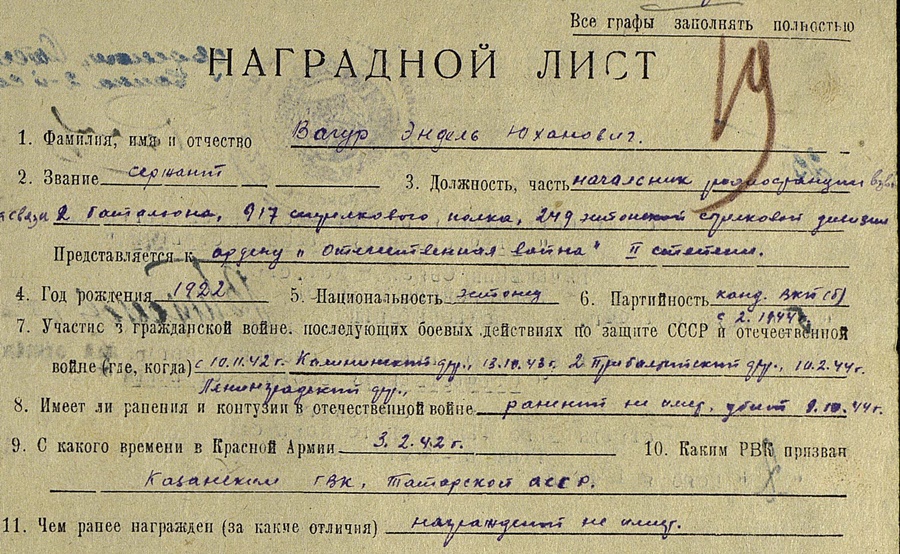 Все графы заполнять полностью
НАГРАДНОЙ ЛИСТ
19
1. Фамилия, имя и отчество Вагур Эндель Юханович.
2. Звание сержант 3. Должность, часть начальник радиостанции взвода
связи 2 батальона, 917 стрелкового полка, 249 эстонской стрелковой дивизии
Представляется к ордену „Отечественная война" II степени.
4. Год рождения 1922 5. Национальность эстонец 6. Партийность канд. ВКП(б)
с 2.1944 г.
7. Участие в гражданской войне, последующих боевых действиях по защите СССР и отечественной
войне (где, когда) с 10.11.42 г. Калининский фр., 13.10.43 г. 2 Прибалтийский фр., 10.2.44 г.
Ленинградский фр.,
8. Имеет ли ранения и контузии в отечественной войне ранений не имеет, убит 9.10.44 г.
9. С какого времени в Красной Армии 3.2.42 г. 10. Каким РВК призван
Казанским ГВК, Татарской АССР.
11. Чем ранее награжден (за какие отличия) награждений не имеет.